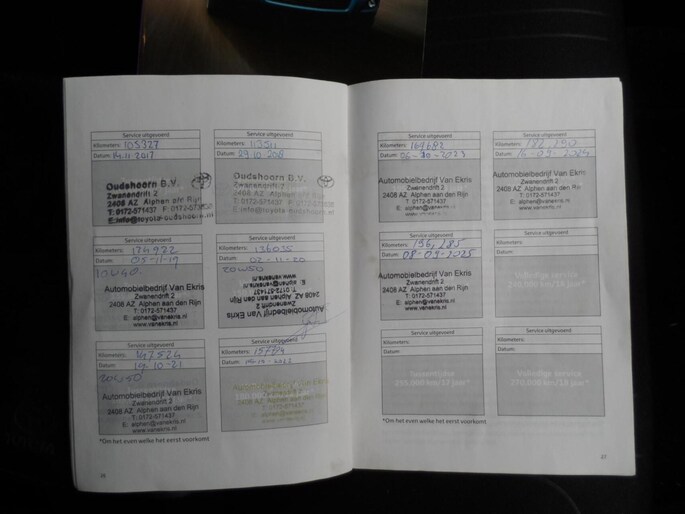 Service uitgevoerd
Kilometers: 105327
Datum: 14.11.2017
Oudshoorn B.V.
Zwanendrift 2
2408 AZ Alphen a/r Rijn
T: 0172-571437
E: info@toyota-oudshoorn.nl
Service uitgevoerd
Kilometers:
Datum: 29.10.208
Oudshoorn B.V.
Zwanendrift 2
2408 AZ
T: 0172-571437
Service uitgevoerd
Kilometers:
Datum: 05-11-19
10W40
Automobielbedrijf Van Ekris
Zwanendrift 2
2408 AZ Alphen aan den Rijn
T: 0172-571437
E: alphen@vanekris.nl
www.vanekris.nl
Service uitgevoerd
Kilometers: 136035
Datum: 02-11-20
Automobielbedrijf Van Ekris
Zwanendrift 2
2408 AZ Alphen aan den Rijn
T: 0172-571437
E: alphen@vanekris.nl
www.vanekris.nl
Service uitgevoerd
Kilometers: 147524
Datum: 10-21
Automobielbedrijf Van Ekris
Zwanendrift 2
2408 AZ Alphen aan den Rijn
T: 0172-571437
E: alphen@vanekris.nl
www.vanekris.nl
Service uitgevoerd
Kilometers:
Datum:
Automobielbedrijf Van Ekris
2408 AZ Alphen aan den Rijn
T: 0172-571437
E: alphen@vanekris.nl
www.vanekris.nl
*Om het even welke het eerst voorkomt
Service uitgevoerd
Kilometers:
Datum: 06-10-2023
Automobielbedrijf Van Ekris
Zwanendrift 2
2408 AZ Alphen aan den Rijn
T: 0172-571437
E: alphen@vanekris.nl
www.vanekris.nl
Service uitgevoerd
Kilometers: 182,290
Datum: 16-09-2024
Automobielbedrijf Van Ekris
Zwanendrift 2
2408 AZ Alphen aan den Rijn
T: 0172-571437
E: alphen@vanekris.nl
www.vanekris.nl
Service uitgevoerd
Kilometers: 196,285
Datum: 08-09-2025
Automobielbedrijf Van Ekris
Zwanendrift 2
2408 AZ Alphen aan den Rijn
T: 0172-571437
E: alphen@vanekris.nl
www.vanekris.nl
Service uitgevoerd
Kilometers:
Datum:
Volledige service
240.000 km/16 jaar*
Service uitgevoerd
Kilometers:
Datum:
Service uitgevoerd
Kilometers:
Datum:
Volledige service
270.000 km/18 jaar*
*Om het even welke het eerst voorkomt
27